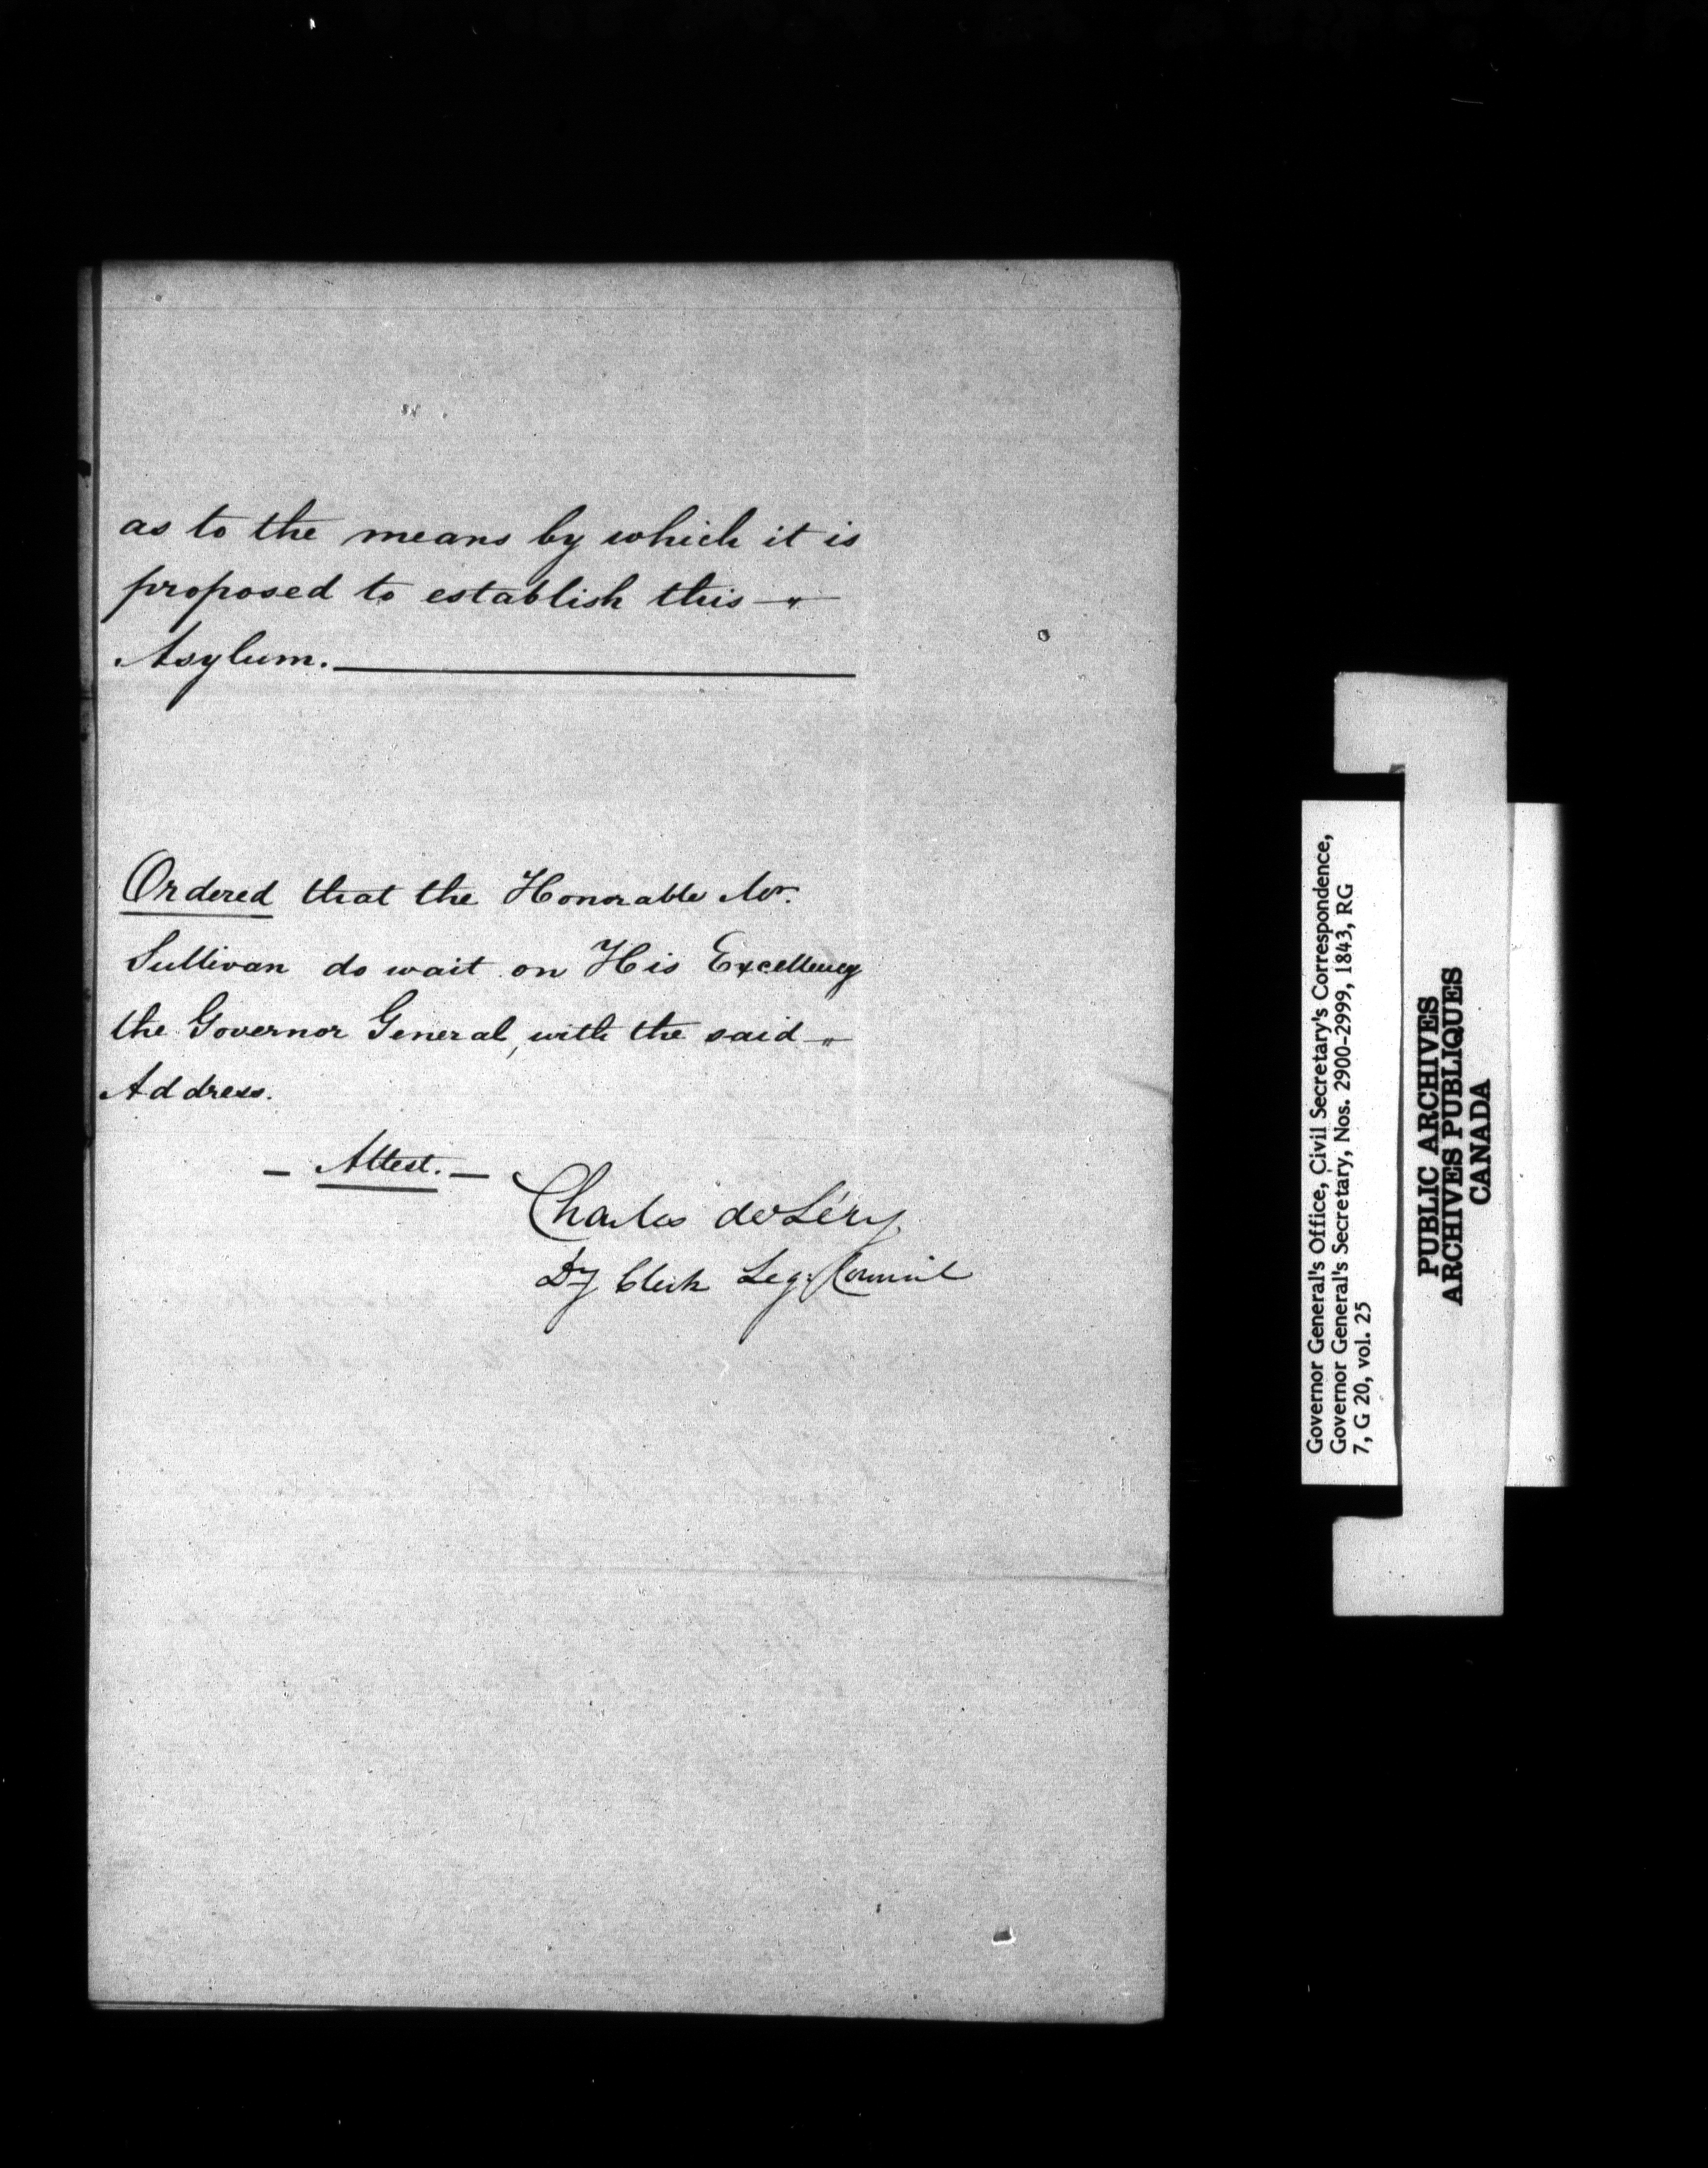 as to the means by which it is
proposed to establish this —"—
Asylum.
Ordered that the Honorable Mr.
Sullivan do wait on His Excellency
the Governor General, with the said —"—
Address.
— Attest. —
Charles deLéry
Dy Clerk Leg: Council
Governor General's Office, Civil Secretary's Correspondence,
Governor General's Secretary, Nos. 2900-2999, 1843, RG
7, G 20, vol. 25
PUBLIC ARCHIVES
ARCHIVES PUBLIQUES
CANADA